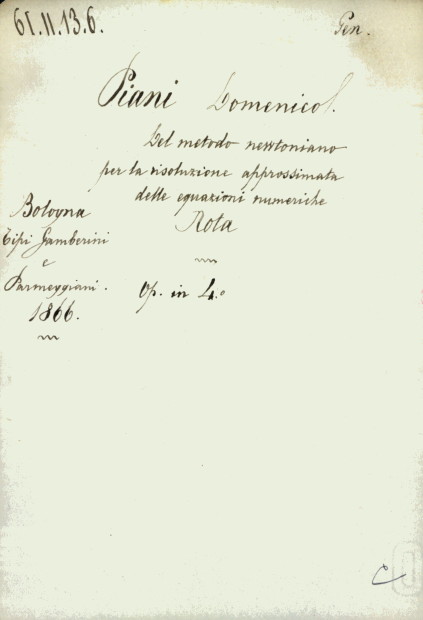 61.II.13.6.
Gen.
Piani Domenico.
Del metodo newtoniano
per la risoluzione approssimata
delle equazioni numeriche
Nota
Bologna
Tipi Gamberini
e
Parmeggiani.
1866.
Op. in 4.º
C